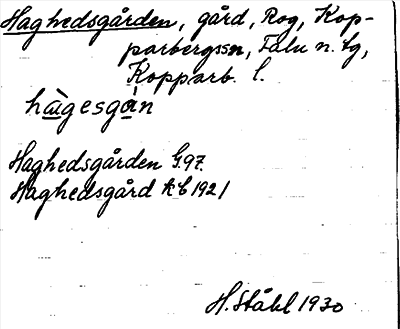 Haghedsgården, gård, Rog, Kop-
parbergssn, Falu n. tg,
Kopparb. l.
hàgesgàn
Haghedsgården G.97.
Haghedsgård kb 1921
H. Ståhl 1930